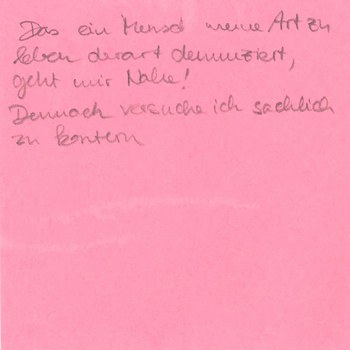 Das ein Mensch meine Art zu
leben derart denunziert,
geht mir Nahe!
Dennoch versuche ich sachlich
zu kontern